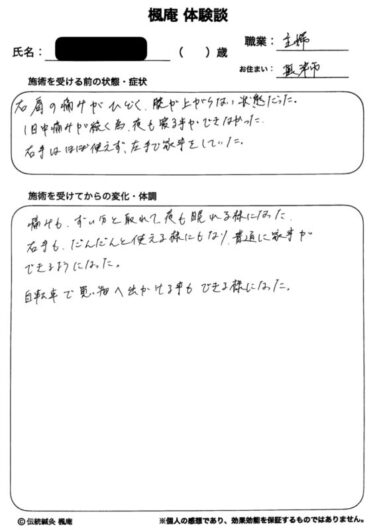 楓庵 体験談
氏名： （ ）歳
職業： 主婦
お住まい： 草津市
施術を受ける前の状態・症状
右肩の痛みがひどく、腕が上がらない状態だった。
1日中痛みが続く為、夜も寝る事ができなかった。
右手はほぼ使えず、左手で家事をしていた。
施術を受けてからの変化・体調
痛みも、ずい分と取れて、夜も眠れる様になった。
右手も、だんだんと使える様にもなり、普通に家事が
できるようになった。
自転車で買い物へ出かける事もできる様になった。
© 伝統鍼灸 楓庵
※個人の感想であり、効果効能を保証するものではありません。